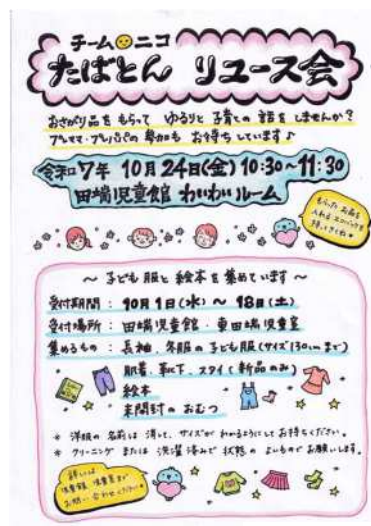 チーム ニコ
たばとん リユース会
おさがり品をもらって ゆるりと 子育ての 話を しませんか？
プレママ・プレパパの 参加も お待ちしています♪
令和7年 10月24日(金) 10:30〜11:30
田端児童館 わいわいルーム
もらった お品を
入れる エコバッグを
持ってきてね
〜 子ども服と 絵本を 集めています 〜
受付期間 : 10月1日(水) 〜 18日(土)
受付場所 : 田端児童館・東田端児童室
集めるもの : 長袖、冬服の 子ども服(サイズ130cmまで)
肌着、靴下、スタイ(新品のみ)
絵本
未開封の おむつ
* 洋服の 名前は 消して、サイズが わかるようにして お持ちください。
* クリーニング または 洗濯済みで 状態の よいもので お願いします。
詳しくは
児童館、児童室まで
お問い合わせください